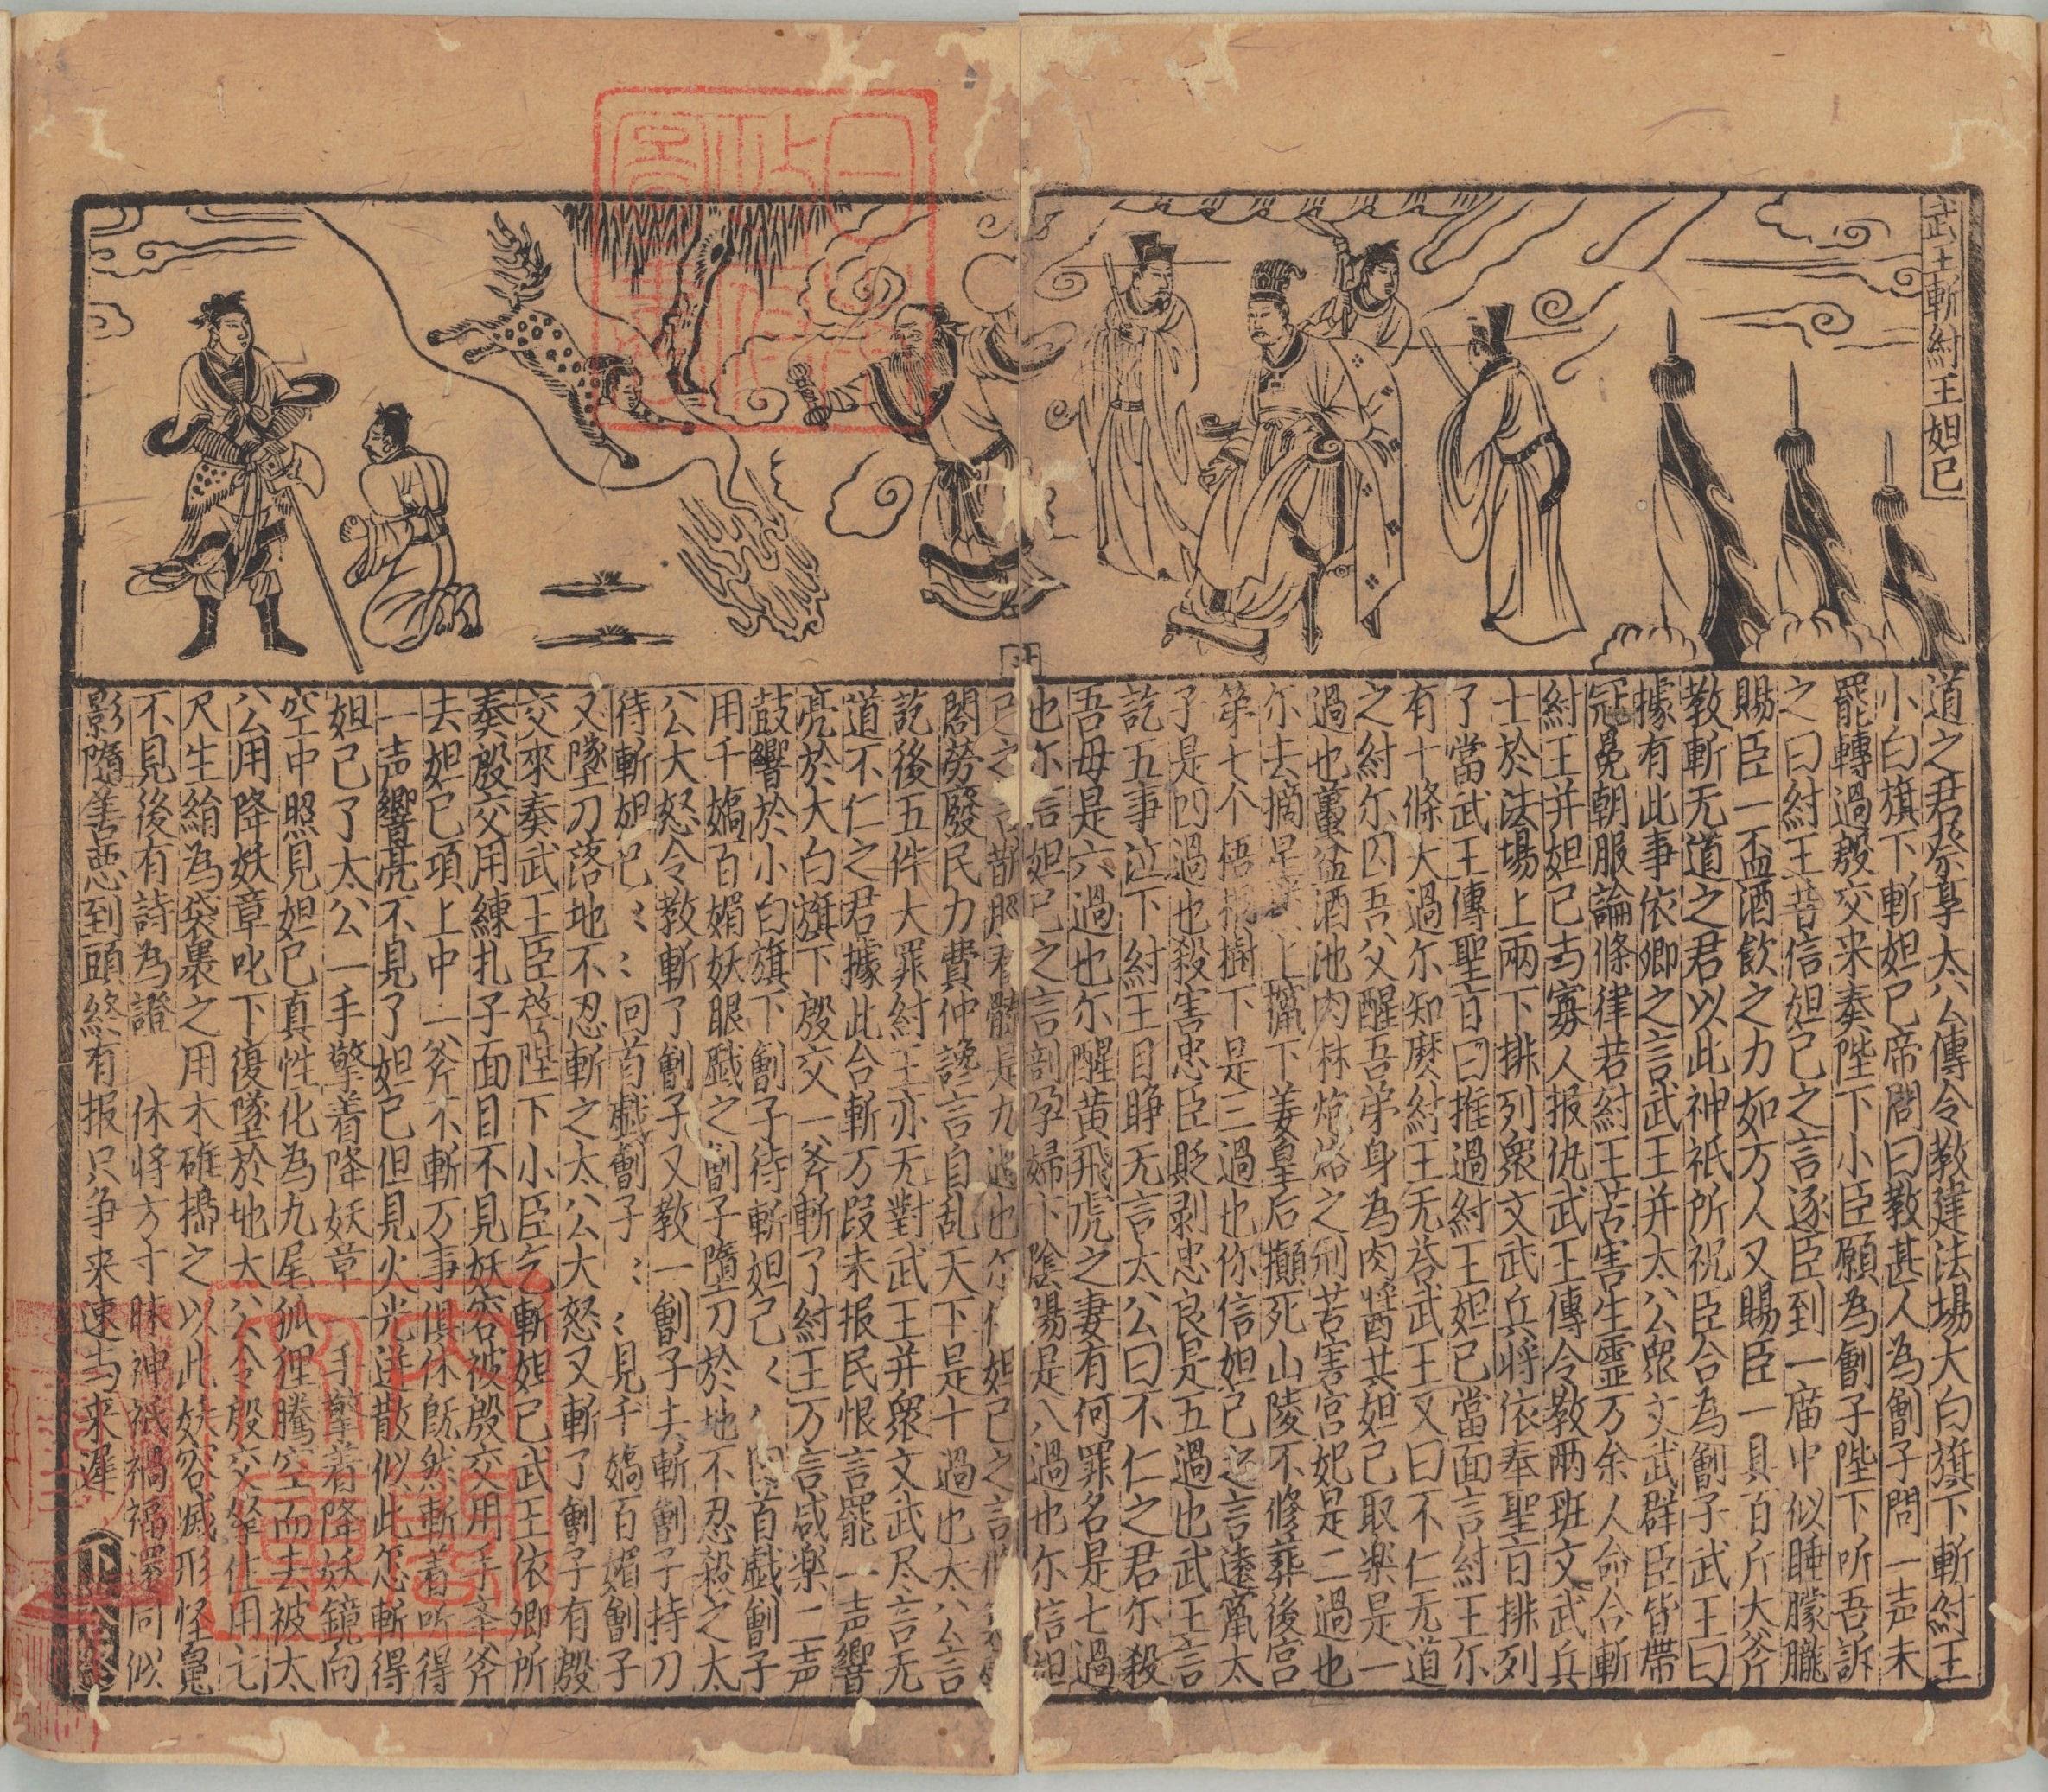 武王斬紂王妲己
道之君祭享太公傳令教建法場大白旗下斬紂王
小白旗下斬妲己帝問曰教甚人為劊子問一声未
罷轉過殷交来奏陛下小臣願為劊子陛下听吾訴
之曰紂王昔信妲己之言逐臣到一庿中似睡朦朧
賜臣一盃酒飲之力如方人又賜臣一具百斤大斧
教斬无道之君以此神祇所祝臣合為劊子武王曰
據有此事依卿之言武王并太公眾文武群臣皆帶
冠冕朝服論條律若紂王苦害生霊万余人命合斬
紂王并妲己与寡人报仇武王傳令教兩班文武兵
士於法場上兩下排列眾文武兵将依奉聖旨排列
了當武王傳聖旨曰推過紂王妲己當面言紂王尔
有十條大過尔知麽紂王无荅武王又曰不仁无道
之紂尔囚吾父醒吾弟身為肉醬共妲己取楽是一
過也蠆盆酒池肉林炮烙之刑苦害宮妃是二過也
尔去摘星上攛下姜皇后攧死山陵不修葬後宮
第七个梧桐樹下是三過也你信妲己之言遠竄太
子是四過也殺害忠臣貶剥忠良是五過也武王言
訖五事泣下紂王目睁无言太公曰不仁之君尔殺
吾母是六過也尔醒黄飛虎之妻有何罪名是七過
也尔信妲己之言剖孕婦卞陰陽是八過也尔信妲
己之言看髓是九過也尔信妲己之言
閣勞廢民力費仲讒言自乱天下是十過也太公言
訖後五件大罪紂王亦无對武王并眾文武尽言无
道不仁之君據此合斬万叚未报民恨言罷一声響
亮於大白旗下殷交一斧斬了紂王万言咸楽二声
鼓響於小白旗下劊子待斬妲己〻回首戯劊子
用千嬌百媚妖眼戯之劊子墮刀於地不忍殺之太
公大怒令教斬了劊子又教一劊子去斬劊子持刀
待斬妲己〻〻回首戯劊子〻〻見千嬌百媚劊子
又墜刀落地不忍斬之太公大怒又斬了劊子有殷
交來奏武王臣啓陛下小臣乞斬妲己武王依卿所
奏殷交用練扎子面目不見妖容被殷交用手舉斧
去妲己項上中一斧不斬万事俱休旣然斬着听得
一声響亮不見了妲己但見火光迸散似此怎斬得
妲己了太公一手擎着降妖章一手擎着降妖鏡向
空中照見妲己真性化為九尾狐狸騰空而去被太
公用降妖章叱下復墜於地太公令殷交拏住用七
尺生絹為袋裹之用木碓搗之以此妖容滅形怪魄
不見後有詩為證　休将方寸昧神祇禍福還同似
影隨善惡到頭終有报只争来速与来遲